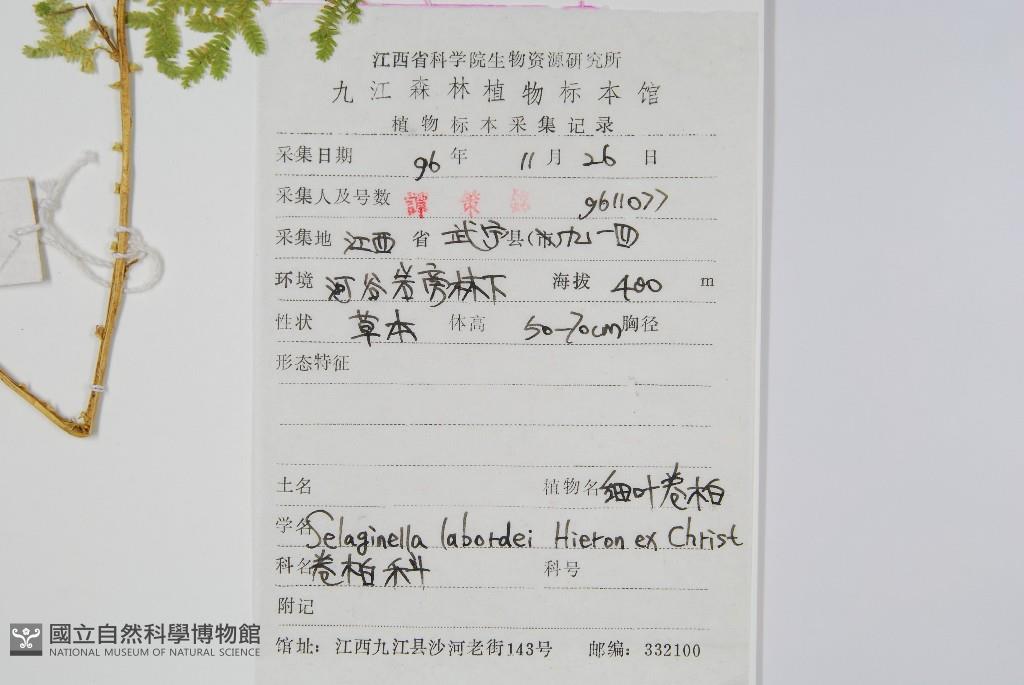 江西省科学院生物资源研究所
九江森林植物标本馆
植物标本采集记录
采集日期 96 年 11 月 26 日
采集人及号数 譚策銘 9611077
采集地 江西 省 武宁县(市)九一四
环境 河谷岩旁林下 海拔 400 m
性状 草本 体高 50-70cm 胸径
形态特征
土名 植物名 细叶卷柏
学名 Selaginella labordei Hieron ex Christ
科名 卷柏科 科号
附记
馆址：江西九江县沙河老街143号 邮编：332100
國立自然科學博物館
NATIONAL MUSEUM OF NATURAL SCIENCE